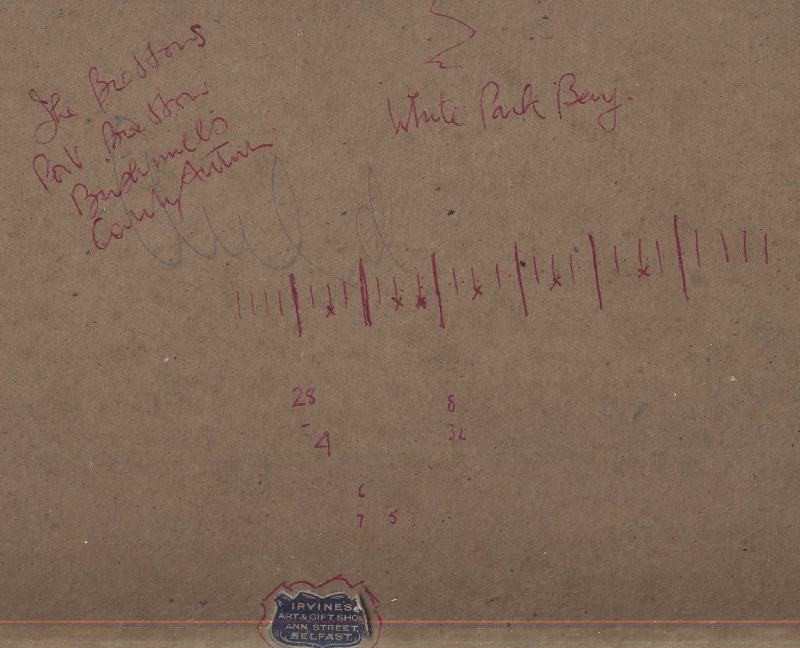 The Brettons
Port Bretton
Bushmills
County Antrim
White Park Bay.
28
- 4
8
32
6
7 5
IRVINES
ART & GIFT SHOP
ANN STREET,
BELFAST.